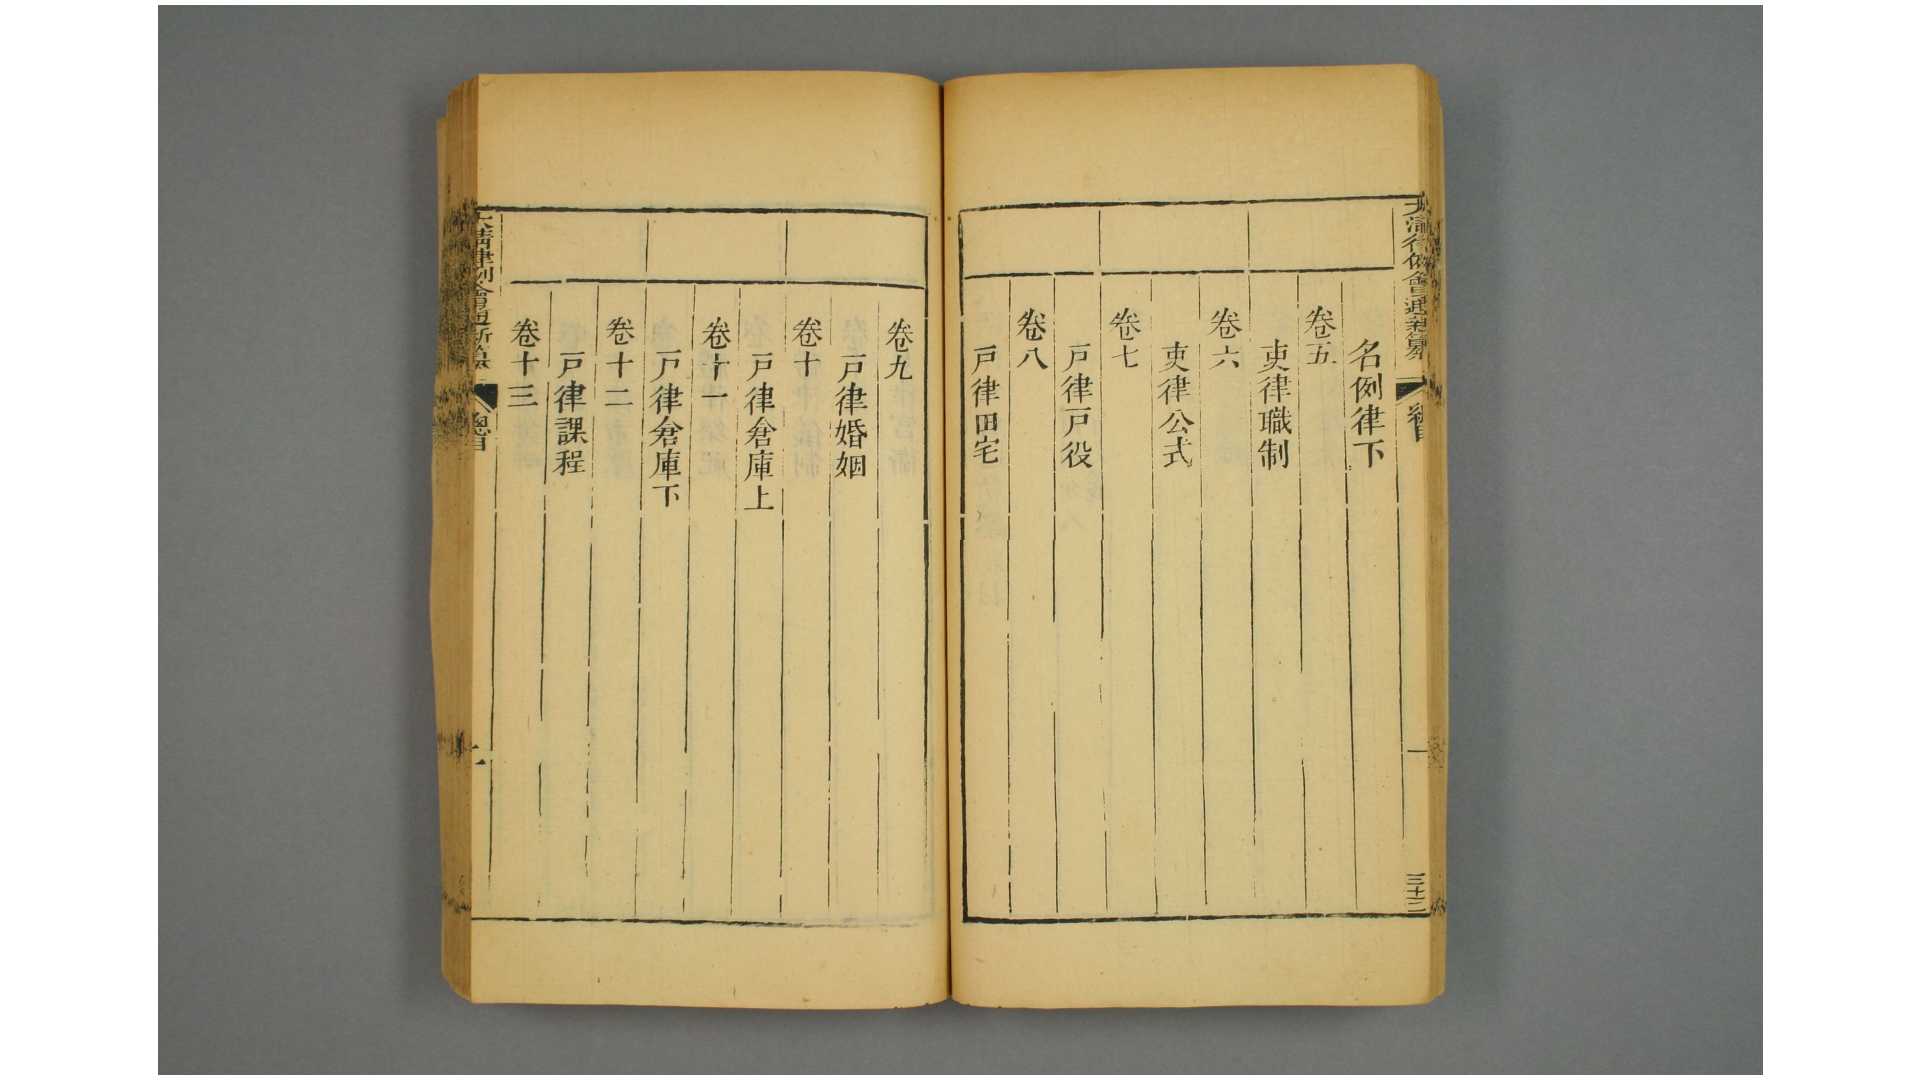 名例律下
卷五
吏律職制
卷六
吏律公式
卷七
戸律戸役
卷八
戸律田宅
三十二
一
卷九
戸律婚姻
卷十
戸律倉庫上
卷十一
戸律倉庫下
卷十二
戸律課程
卷十三
大清律例會通新纂